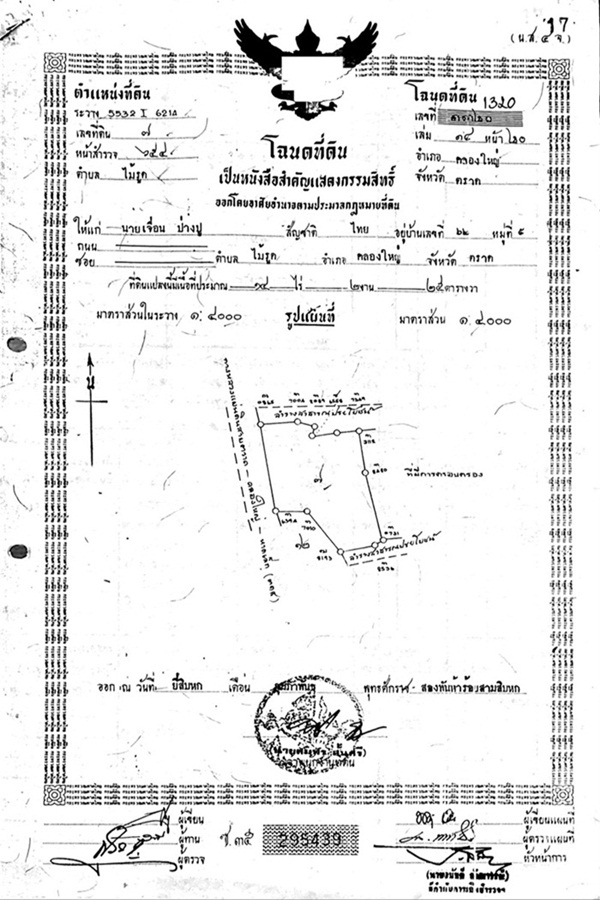 17
(น.ส. ๔ จ.)
ตำแหน่งที่ดิน
ระวาง 5532 I 6214
เลขที่ดิน ๗
หน้าสำรวจ ๖๕๔
ตำบล ไม้รูด
โฉนดที่ดิน
เลขที่ 1320
เล่ม ๑๔ หน้า ๒๐
อำเภอ คลองใหญ่
จังหวัด ตราด
โฉนดที่ดิน
เป็นหนังสือสำคัญแสดงกรรมสิทธิ์
ออกโดยอาศัยอำนาจตามประมวลกฎหมายที่ดิน
ให้แก่ นายเจื่อน ป่างปู สัญชาติ ไทย อยู่บ้านเลขที่ ๖๒ หมู่ที่ ๕
ถนน
ซอย ตำบล ไม้รูด อำเภอ คลองใหญ่ จังหวัด ตราด
ที่ดินแปลงนี้มีเนื้อที่ประมาณ ๑๔ ไร่ ๒ งาน ๒๕ ตารางวา
มาตราส่วนในระวาง ๑:๔๐๐๐ รูปแผนที่ มาตราส่วน ๑:๔๐๐๐
น
ลำรางสาธารณประโยชน์
๗
ที่มีการครอบครอง
๑๒
ทางหลวงแผ่นดินสายตราด - คลองใหญ่ - หาดเล็ก (๓๑๘)
ลำรางสาธารณประโยชน์
ออก ณ วันที่ ยี่สิบหก เดือน กุมภาพันธ์ พุทธศักราช สองพันห้าร้อยสามสิบหก
เจ้าพนักงานที่ดิน
ผู้เขียน
ผู้ทาน
ผู้ตรวจ
ช.๓๕ 295439
ผู้เขียนแผนที่
ผู้ตรวจแผนที่
หัวหน้าการ